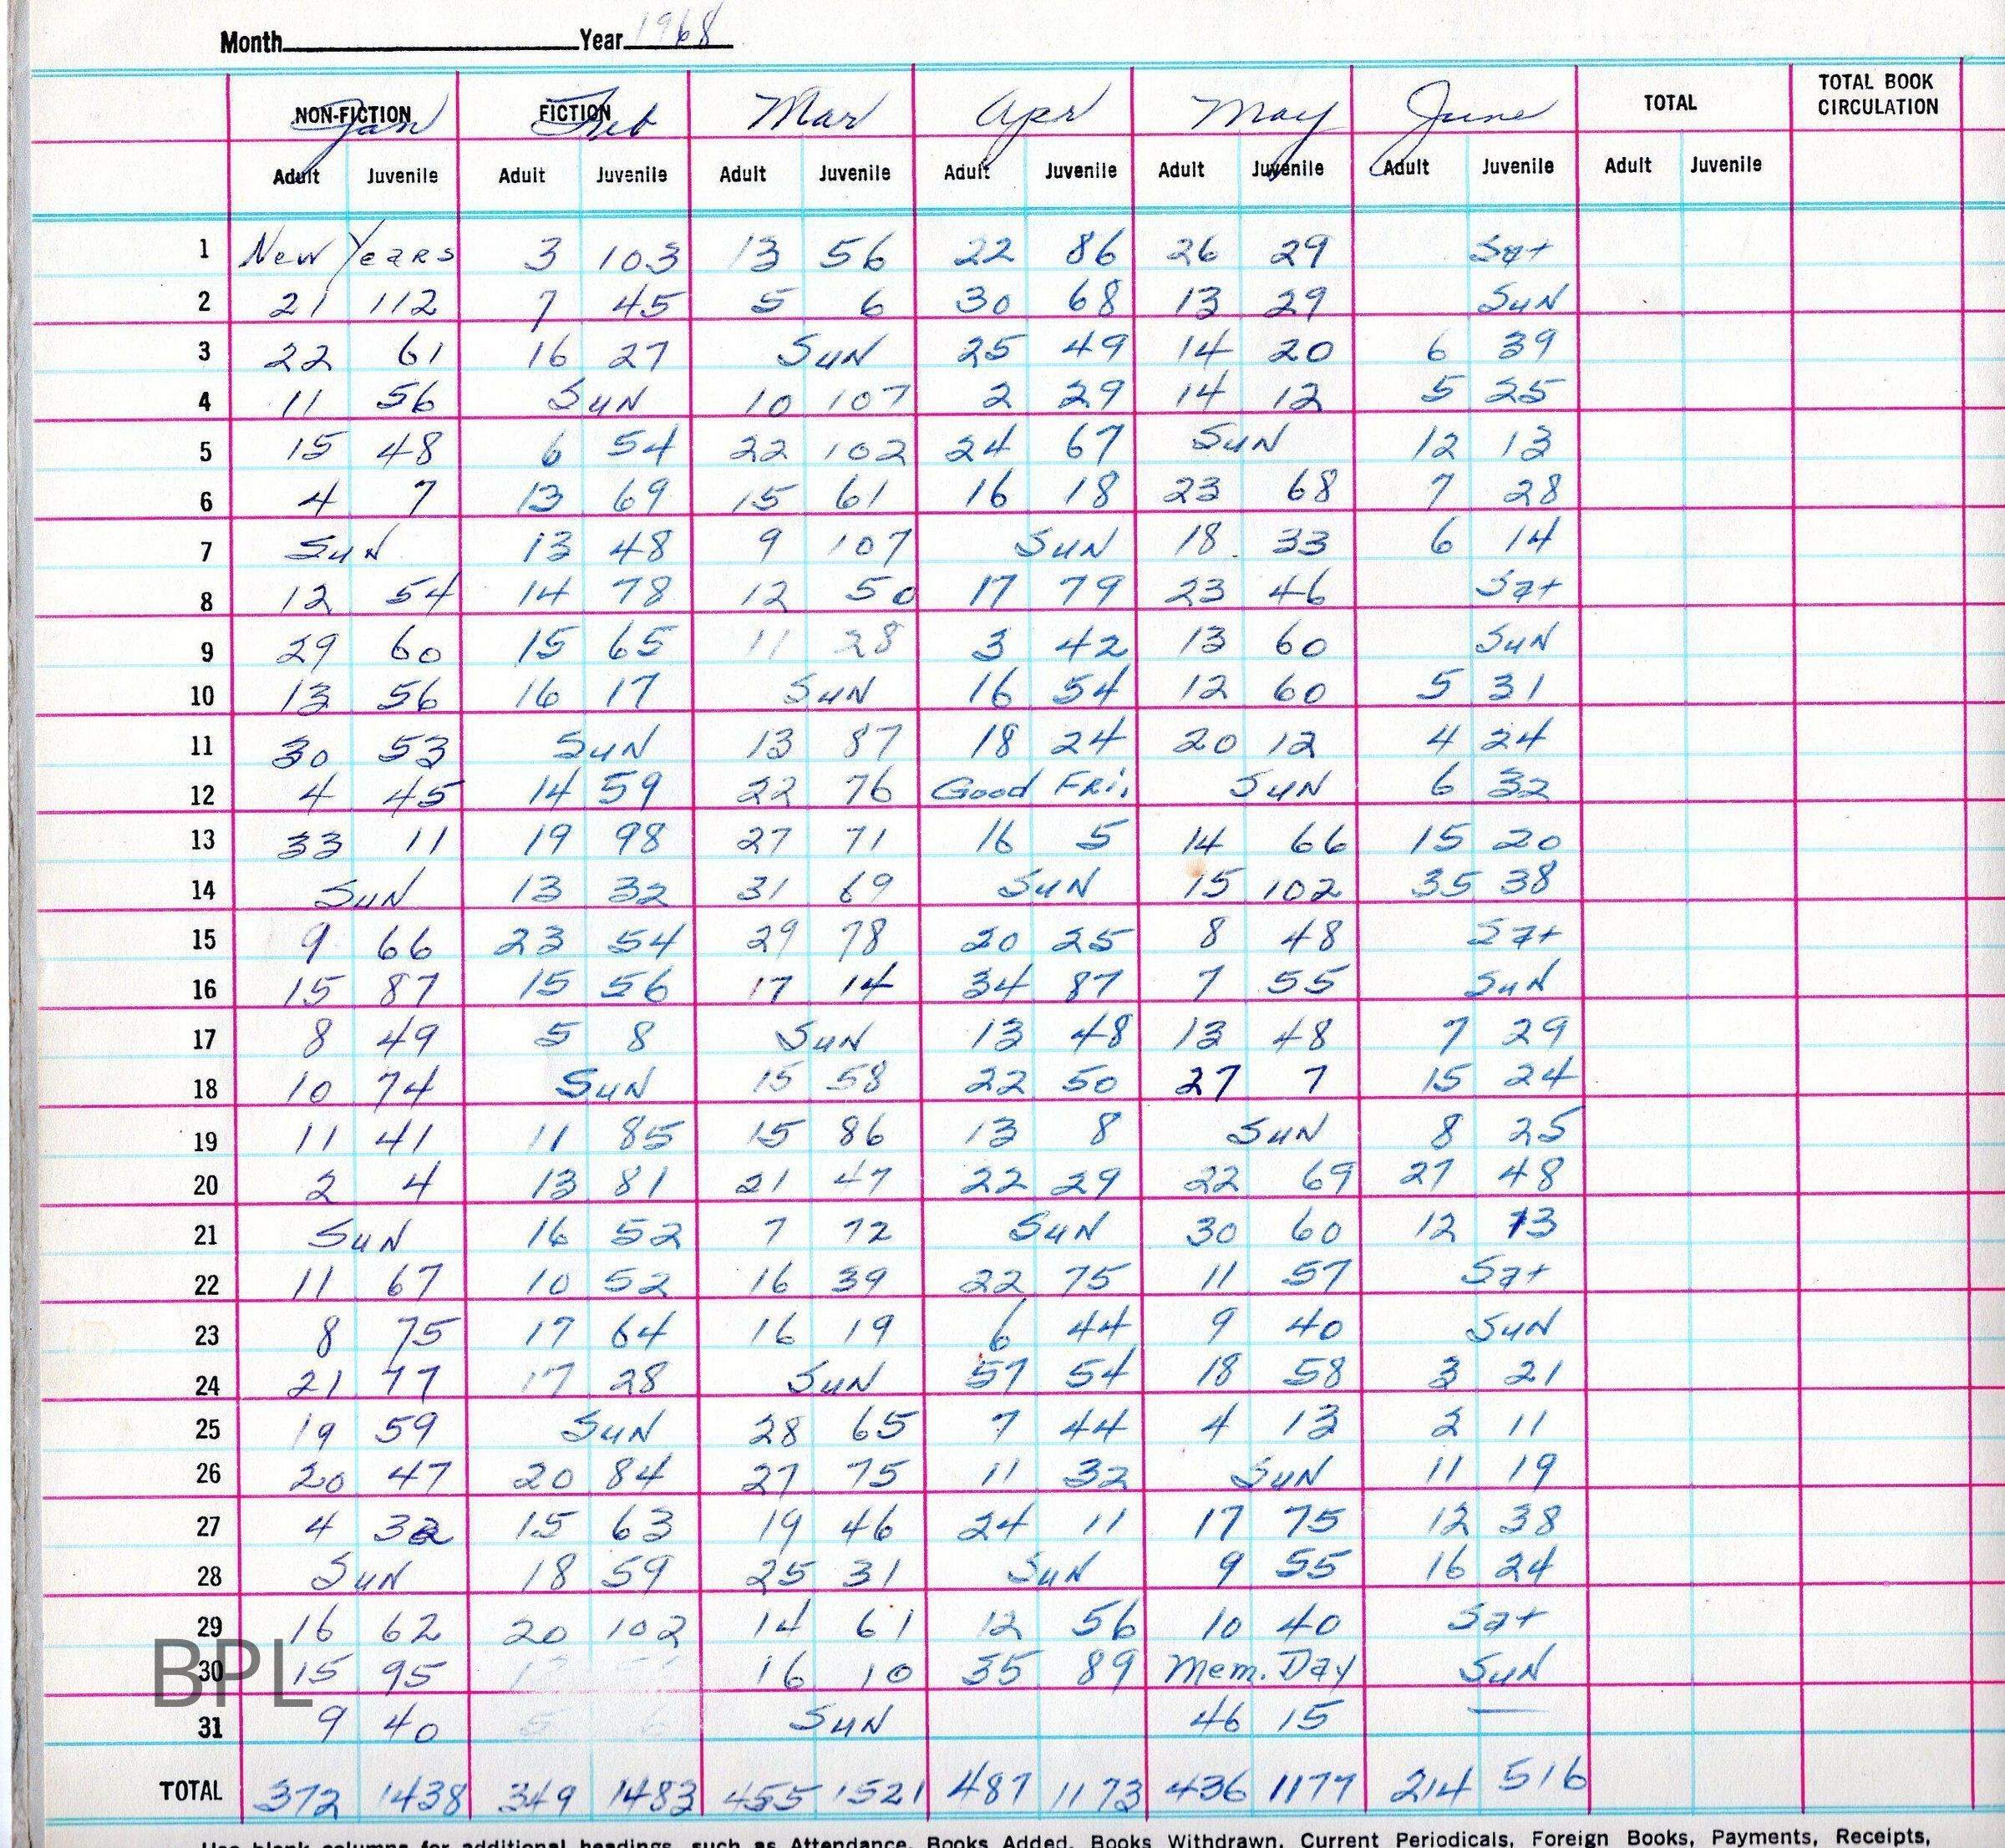 Month Year 1968
NON-FICTION FICTION TOTAL TOTAL BOOK
Jan Feb Mar Apr May June CIRCULATION
Adult Juvenile Adult Juvenile Adult Juvenile Adult Juvenile Adult Juvenile Adult Juvenile Adult Juvenile
1 New Years 3 103 13 56 22 86 26 29 Sat
2 21 112 7 45 5 6 30 68 13 29 SUN
3 22 61 16 27 SUN 25 49 14 20 6 39
4 11 56 SUN 10 107 2 29 14 12 5 25
5 15 48 6 54 22 102 24 67 SUN 12 13
6 4 7 13 69 15 61 16 18 23 68 7 28
7 SUN 13 48 9 107 SUN 18 33 6 14
8 12 54 14 78 12 50 17 79 23 46 Sat
9 29 60 15 65 11 28 3 42 13 60 SUN
10 13 56 16 17 SUN 16 54 12 60 5 31
11 30 53 SUN 13 87 18 24 20 12 4 24
12 4 45 14 59 22 76 Good FRi. SUN 6 32
13 33 11 19 98 27 71 16 5 14 66 15 20
14 SUN 13 32 31 69 SUN 15 102 35 38
15 9 66 23 54 29 78 20 25 8 48 Sat
16 15 87 15 56 17 14 34 87 7 55 SUN
17 8 49 5 8 SUN 13 48 13 48 7 29
18 10 74 SUN 15 58 22 50 27 7 15 24
19 11 41 11 85 15 86 13 8 SUN 8 25
20 2 4 13 81 21 47 22 29 22 69 27 48
21 SUN 16 52 7 72 SUN 30 60 12 13
22 11 67 10 52 16 39 22 75 11 57 Sat
23 8 75 17 64 16 19 6 44 9 40 SUN
24 21 77 17 28 SUN 57 54 18 58 3 21
25 19 59 SUN 28 65 7 44 4 13 2 11
26 20 47 20 84 27 75 11 32 SUN 11 19
27 4 32 15 63 19 46 24 11 17 75 12 38
28 SUN 18 59 25 31 SUN 9 55 16 24
29 16 62 20 102 14 61 12 56 10 40 Sat
BPL
30 15 95 16 10 35 89 Mem. Day SUN
31 9 40 SUN 46 15 —
TOTAL 372 1438 349 1483 455 1521 487 1173 436 1177 214 516
Use blank columns for additional headings, such as Attendance, Books Added, Books Withdrawn, Current Periodicals, Foreign Books, Payments, Receipts,